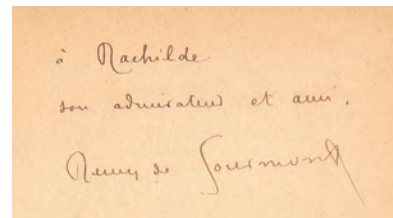 à Rachilde
son admirateur et ami.
Remy de Gourmont